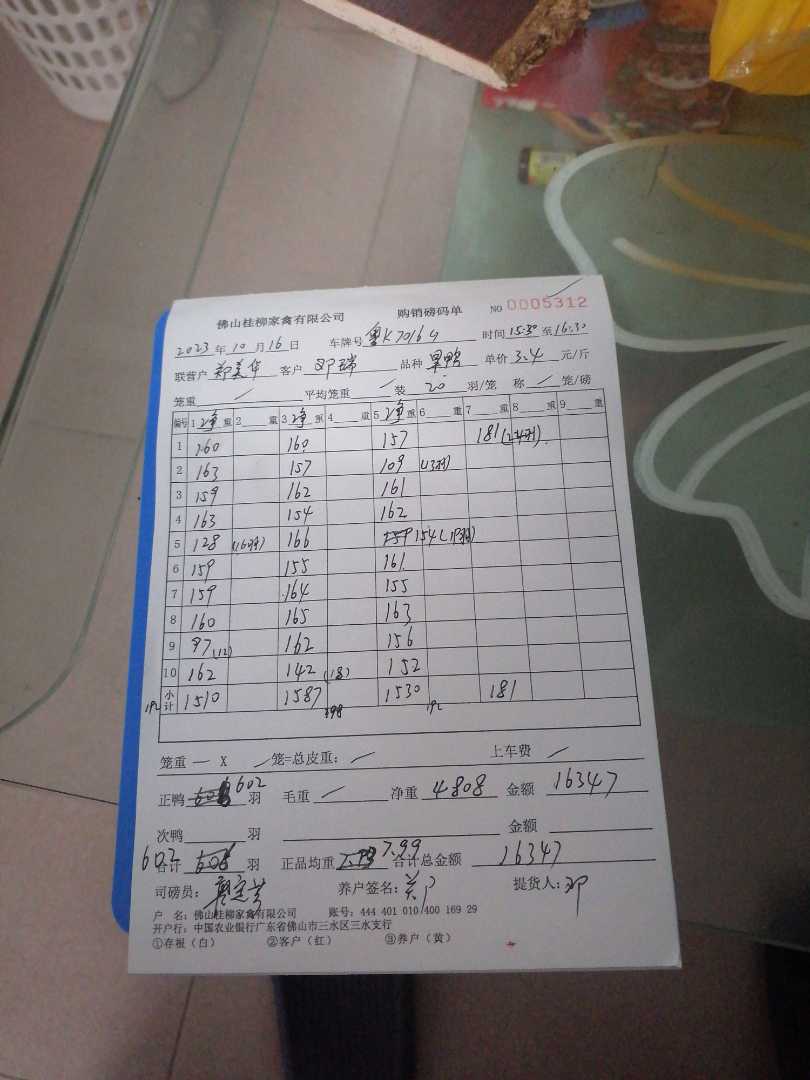 佛山桂柳家禽有限公司 购销磅码单 NO 0005312
2023 年 10 月 16 日 车牌号 粤K7016G 时间 15:30 至 16:30
联营户 郑美华 客户 邓瑞 品种 果鸭 单价 3.4 元/斤
笼重 / 平均笼重 / 装 20 羽/笼 称 / 笼/磅
编号 1 净 重 2 重 3 净 重 4 重 5 净 重 6 重 7 重 8 重 9 重
1 160 160 157 181
2 163 157 109 (13羽)
3 159 162 161
4 163 154 162
5 128 (16羽) 166 154 (19羽)
6 159 155 161
7 159 164 155
8 160 165 163
9 97 (12) 162 156
10 162 142 (18) 152
小计 1510 1587 1530 181
192 198 192
笼重 — X / 笼=总皮重: / 上车费 /
正鸭 602 羽 毛重 / 净重 4808 金额 16347
次鸭 羽 金额
合计 602 羽 正品均重 7.99 合计总金额 16347
司磅员: 养户签名: 提货人: 邓
户 名: 佛山桂柳家禽有限公司 账号: 444 401 010 400 169 29
开户行: 中国农业银行广东省佛山市三水区三水支行
①存根(白) ②客户(红) ③养户(黄)